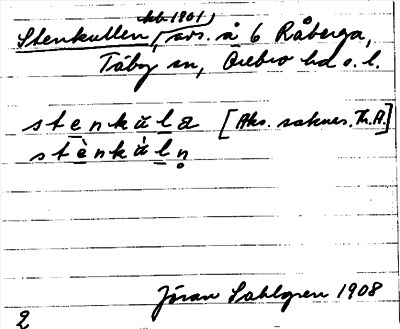 kb 1901)
Stenkullen, avs. å 6 Råberga,
Täby sn, Örebro hd o. l.
stenkula [Aks. saknas. Th. A.]
stènkùln̥
Jöran Sahlgren 1908
2